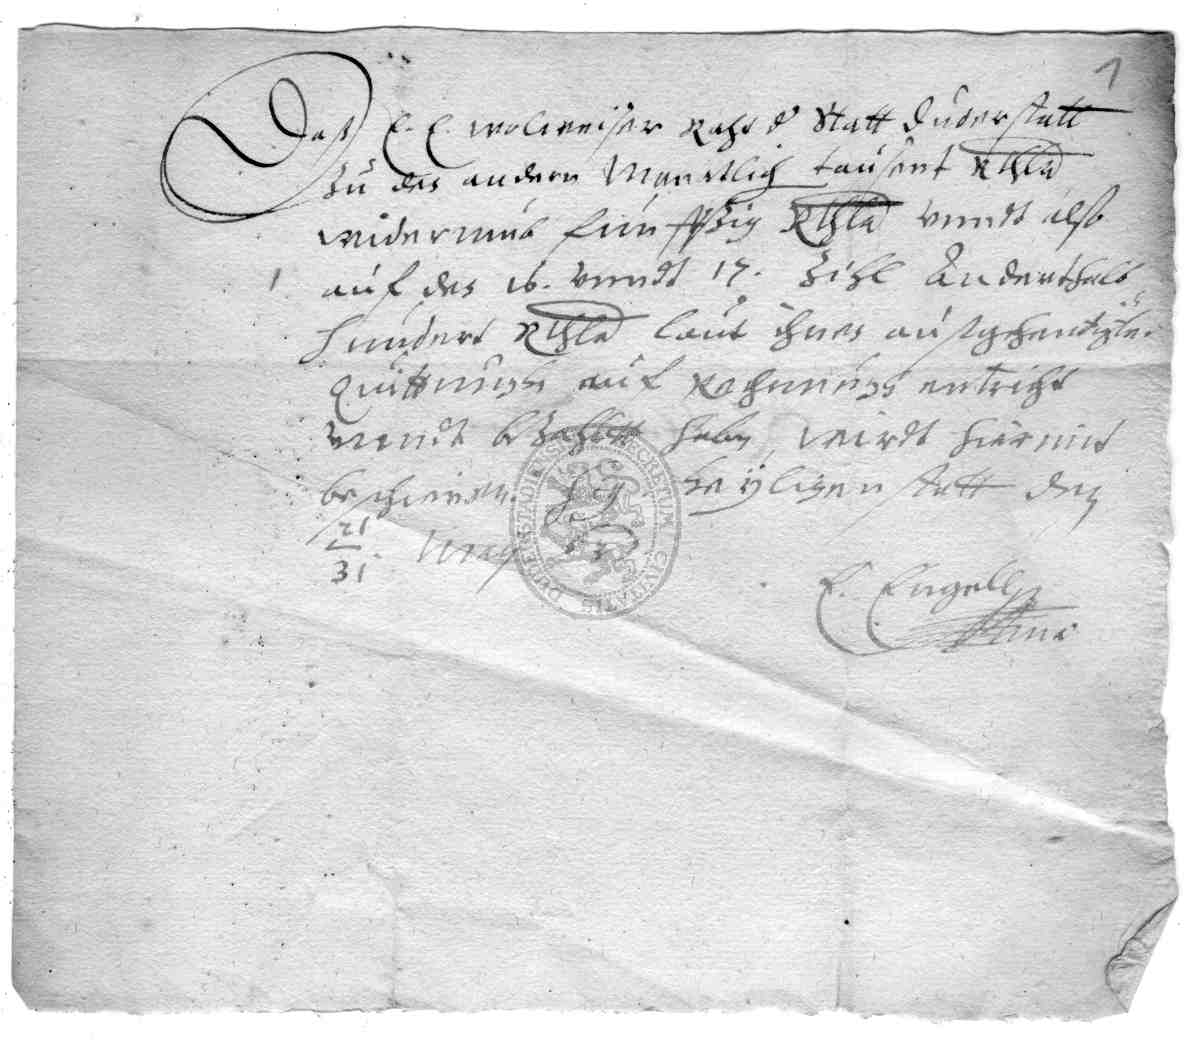 1
Daß E. E. wolweiser Raht d Statt Duderstatt
zu des andern Monatlich tausent Rthlr
widerumb funffzig Rthlr vnndt also
auf des 16. vnndt 17. Zihl Anderthalb
hundert Rthlr laut ihnes außgehendigte
Quittungh auf Rechnungh entricht
vnndt bezahlett habe, wirdt hiermit
bescheindt. Heyligenstatt den
21
31. May
E. Engell
SECRETUM CIVITATIS DUDENSTADIENSIS